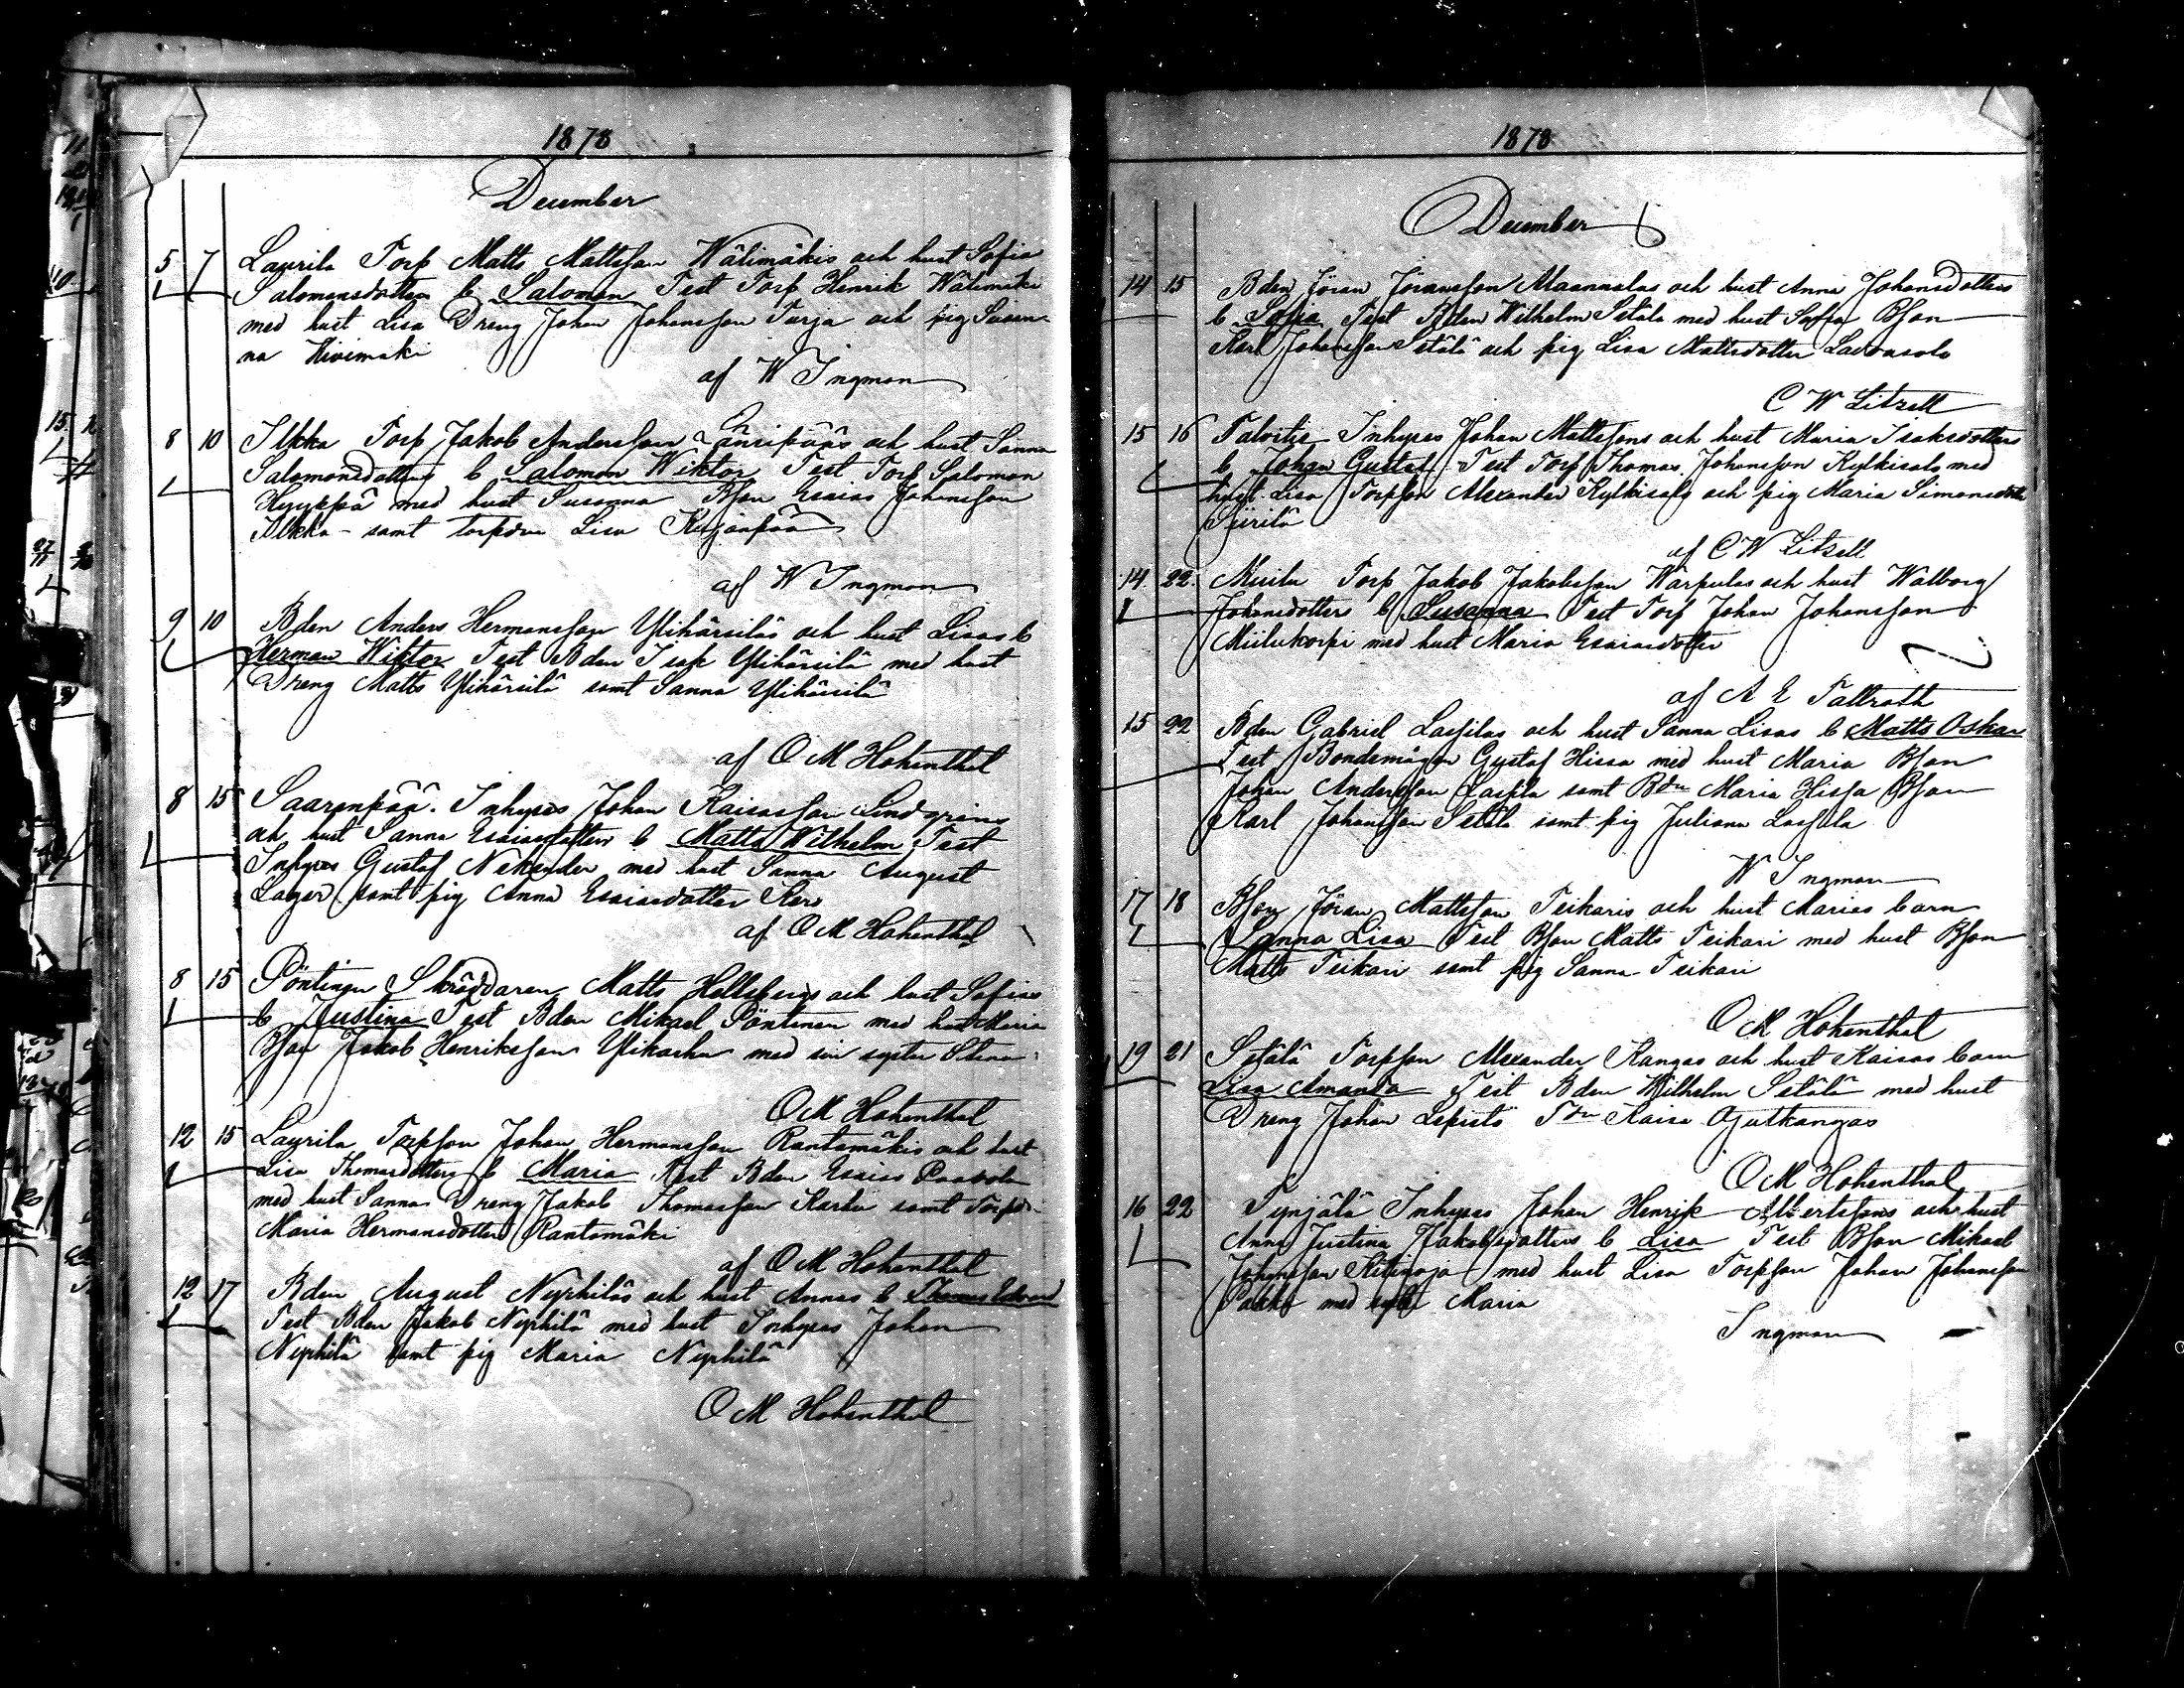 1878
December
5 7 Laurila Torp Matts Mattsson Wälimäkis och hust Sofia
Salomonsdotters b Salomon Test Torp Henrik Wälimäki
med hust Lisa Dreng Johan Johansson Turja och pig Susan-
na Kivimäki
af W Ingman
8 10 Ilkka Torp Jakob Andersson och hust Sanna
Salomonsdotters b Salomon Wiktor Test Torp Salomon
Hyyppä med hust Susanna Bson Esaias Johansson
Ilkka - samt torpdrn Lisa Kujanpää
af W Ingman
9 10 Bden Anders Hermansson Ylihärsiläs och hust Lisas b
Herman Wiktor Test Bden Isak Ylihärsilä med hust
Dreng Matts Ylihärsilä samt Sanna Ylihärsilä
af O M Hohenthal
8 15 Saarenpää. Inhyses Johan Kaisasson Lindgrens
och hust Sanna Esaiasdotters b Matts Wilhelm Test
Inhyses Gustaf Nekander med hust Sanna August
Lager samt pig Anna Esaiasdotter
af O M Hohenthal
8 15 Pöntinen Skräddaren Matts Hellsbergs och hust Sofias
b Justina Test Bden Mikael Pöntinen med hust Maria
Bson Jakob Henriksson med sin syster Stena
O M Hohenthal
12 15 Laurila Torpson Johan Hermansson Rantamäkis och hust
Lisa Thomasdotters b Maria Test Bden Esaias Paavola
med hust Sanna Dreng Jakob Thomasson Karhu samt Torpdr
Maria Hermansdotter Rantamäki
af O M Hohenthal
12 17 Bden August Nyrhiläs och hust Annas b Thomas Edvard
Test Bden Jakob Nyrhilä med hust Inhyses Johan
Nyrhilä samt pig Maria Nyrhilä
O M Hohenthal
1878
December
14 15 Bden Jöran Jöransson Maunulas och hust Anna Johansdotters
b Sofia Test Bden Wilhelm Setälä med hust Sofia Bson
Karl Johansson Setälä och pig Lisa Mattsdotter
C W Litzell
15 16 Talvitie Inhyses Johan Mattssons och hust Maria Isaksdotters
b Johan Gustaf Test Torp Thomas Johansson Kylkisalo med
hust Lisa Torpson Alexander Kylkisalo och pig Maria Simonsdotter
Siirilä
af C W Litzell
14 22 Miilu Torp Jakob Jakobsson Warpulas och hust Walborg
Johansdotter b Susanna Test Torp Johan Johansson
Miilukorpi med hust Maria Esaiasdotter
af A E Tallroth
15 22 Bden Gabriel Lassilas och hust Sanna Lisas b Matts Oskar
Test Bondemågen Gustaf Hissa med hust Maria Bson
Johan Andersson Lassila samt Bdn Maria Hissa Bson
Karl Johansson Setälä samt pig Juliana Lassila
W Ingman
17 18 Bson Jöran Mattsson Teikaris och hust Marias barn
Sanna Lisa Test Bson Matts Teikari med hust Bson
Matts Teikari samt pig Sanna Teikari
O M Hohenthal
19 21 Setälä Torpson Alexander Kangas och hust Kaisas barn
Lisa Amanda Test Bden Wilhelm Setälä med hust
Dreng Johan Lepistö Tdn Kaisa Ojutkangas
O M Hohenthal
16 22 Tynjälä Inhyses Johan Henrik Albertssons och hust
Anna Justina Jakobsdotters b Lisa Test Bson Mikael
Johansson Kitinoja med hust Lisa Torpson Johan Johansson
med syster Maria
Ingman